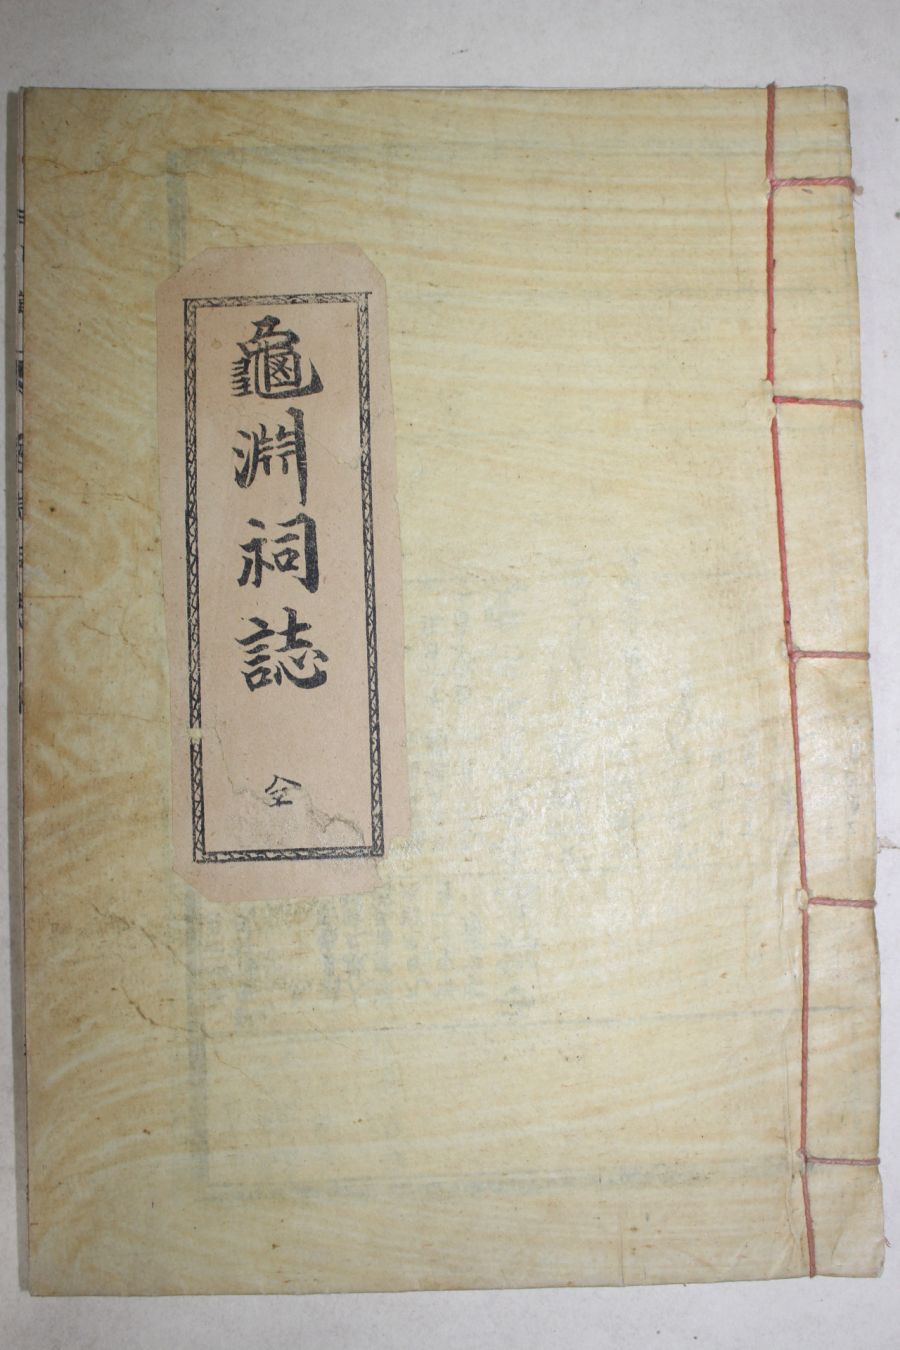 龜淵祠誌
全